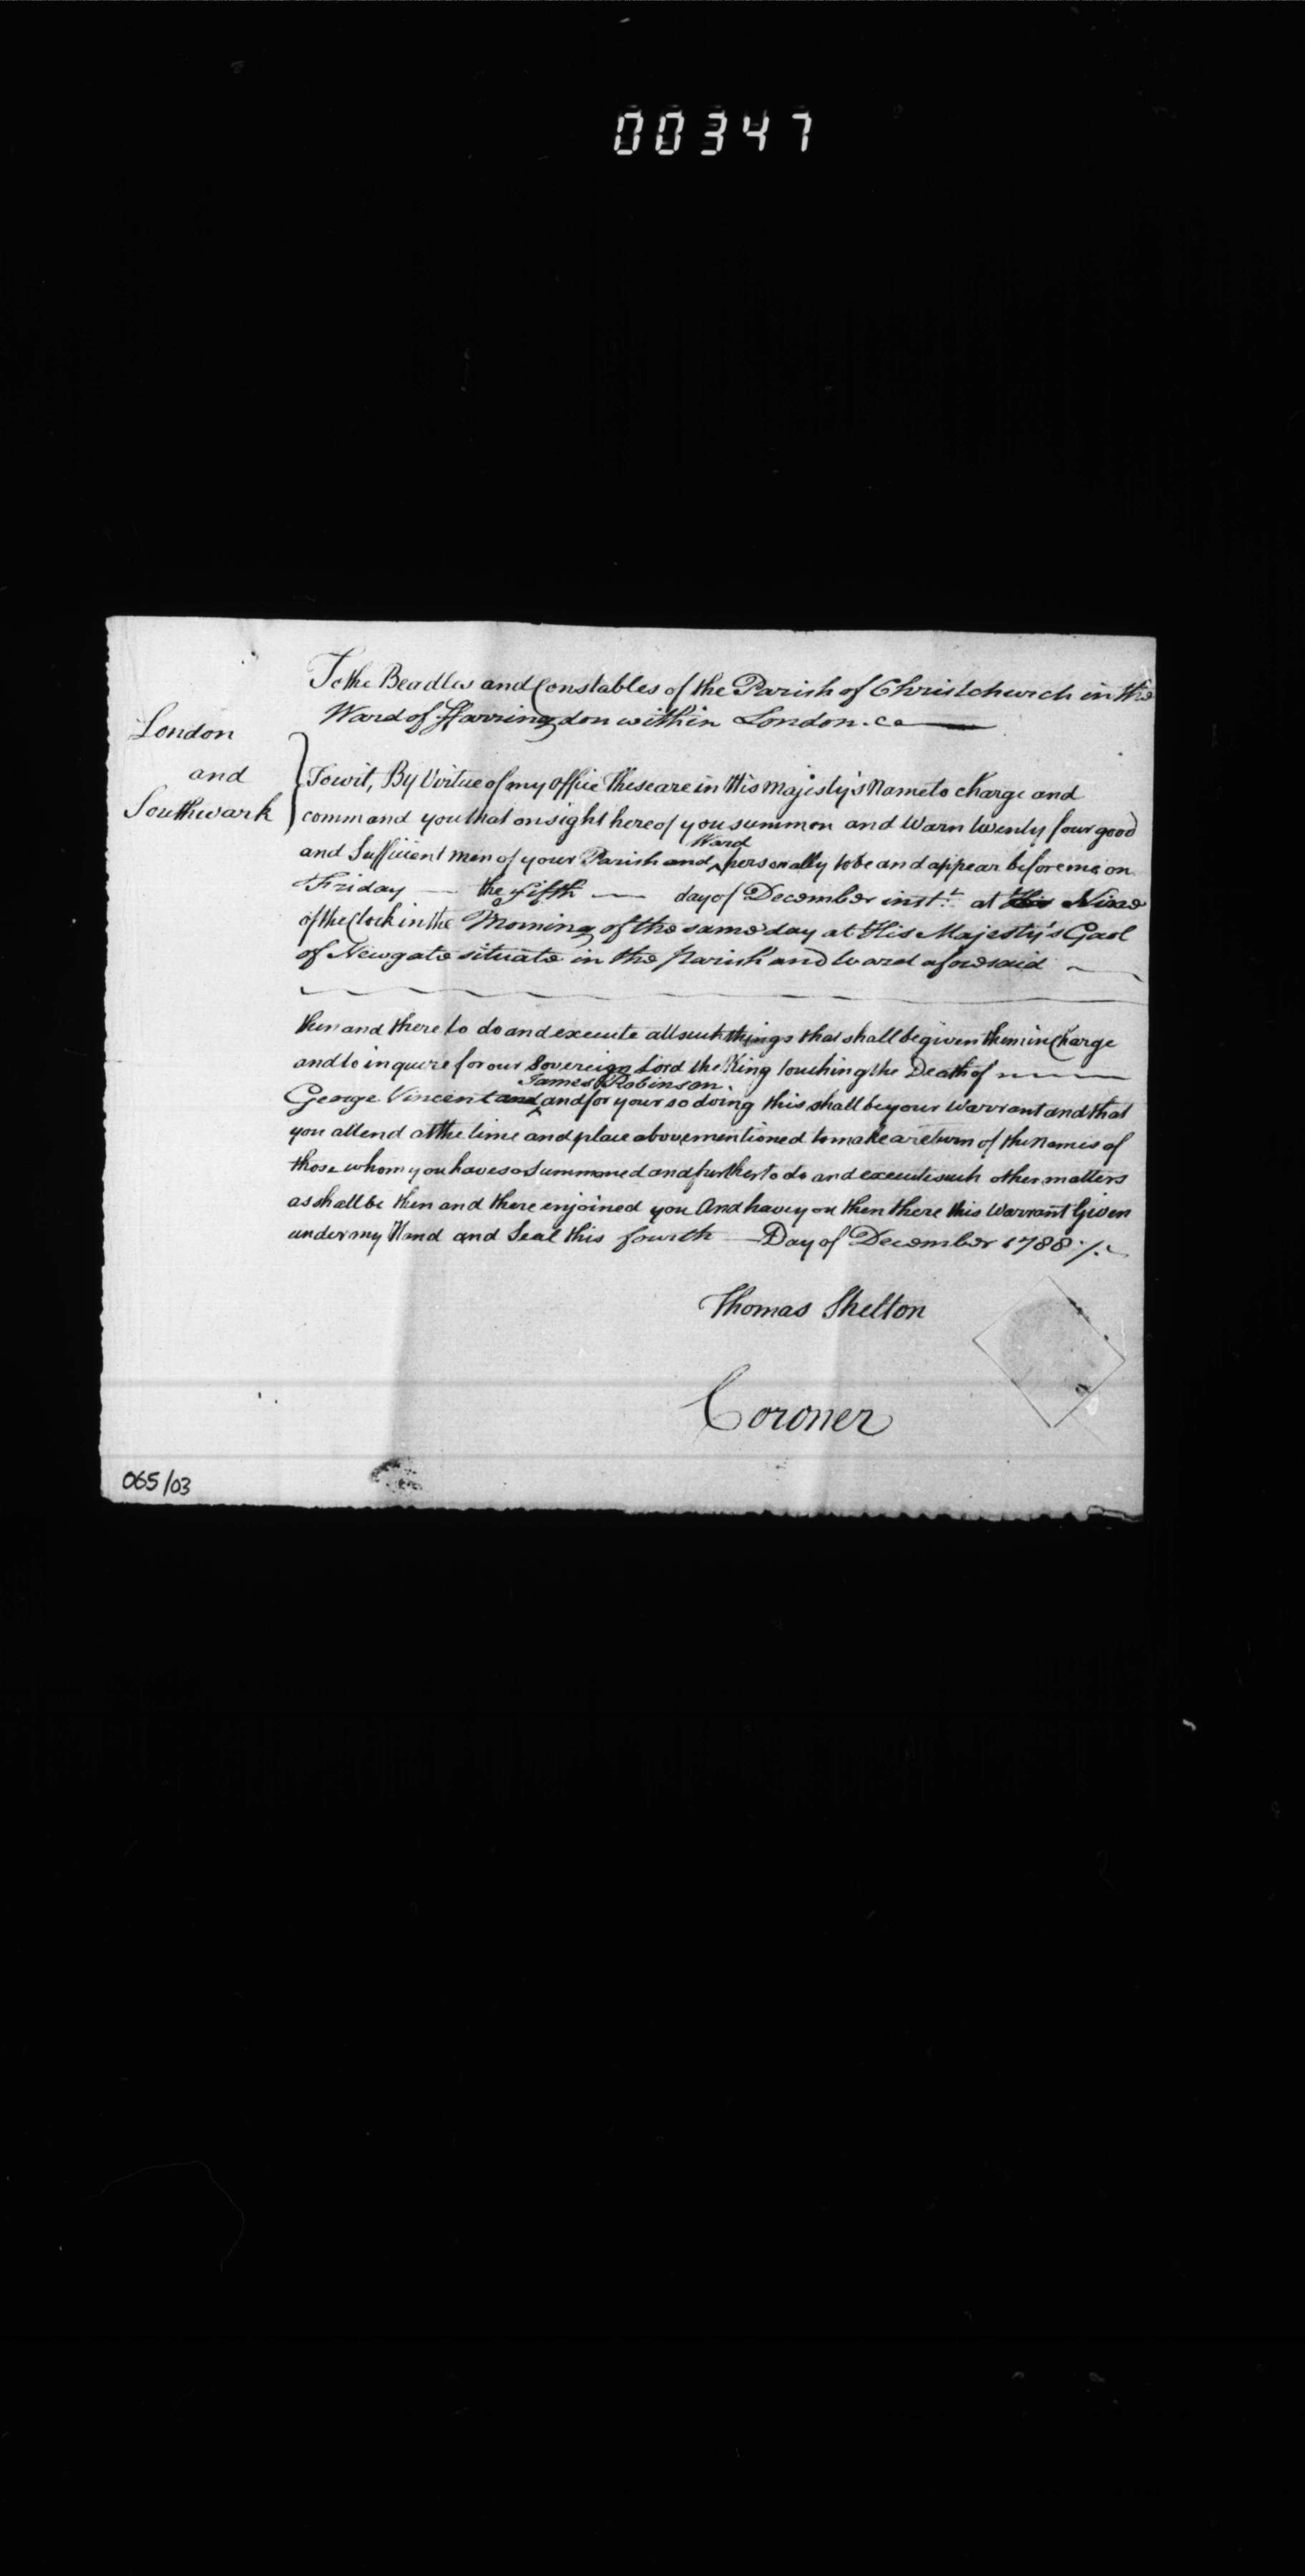 00347
To the Beadles and Constables of the Parish of Christchurch in the
Ward of Farringdon within London
London
and
Southwark
Towit, By Virtue of my Office These are in His Majesty's Name to charge and
command you that on sight hereof you summon and Warn twenty four good
and Sufficient men of your Parish and Ward personally to be and appear before me on
Friday — the fifth — day of December inst.t at Nine
of the Clock in the Morning of the same day at His Majesty's Gaol
of Newgate situate in the Parish and Ward aforesaid
then and there to do and execute all such things that shall be given them in Charge
and to inquire for our Sovereign Lord the King touching the Death of
George Vincent and James Robinson and for your so doing this shall be your Warrant and that
you attend at the time and place abovementioned to make a return of the Names of
those whom you have so Summoned and further to do and execute such other matters
as shall be then and there enjoined you And have you then there this Warrant Given
under my Hand and Seal this fourth — Day of December 1788
Thomas Shelton
Coroner
065/03